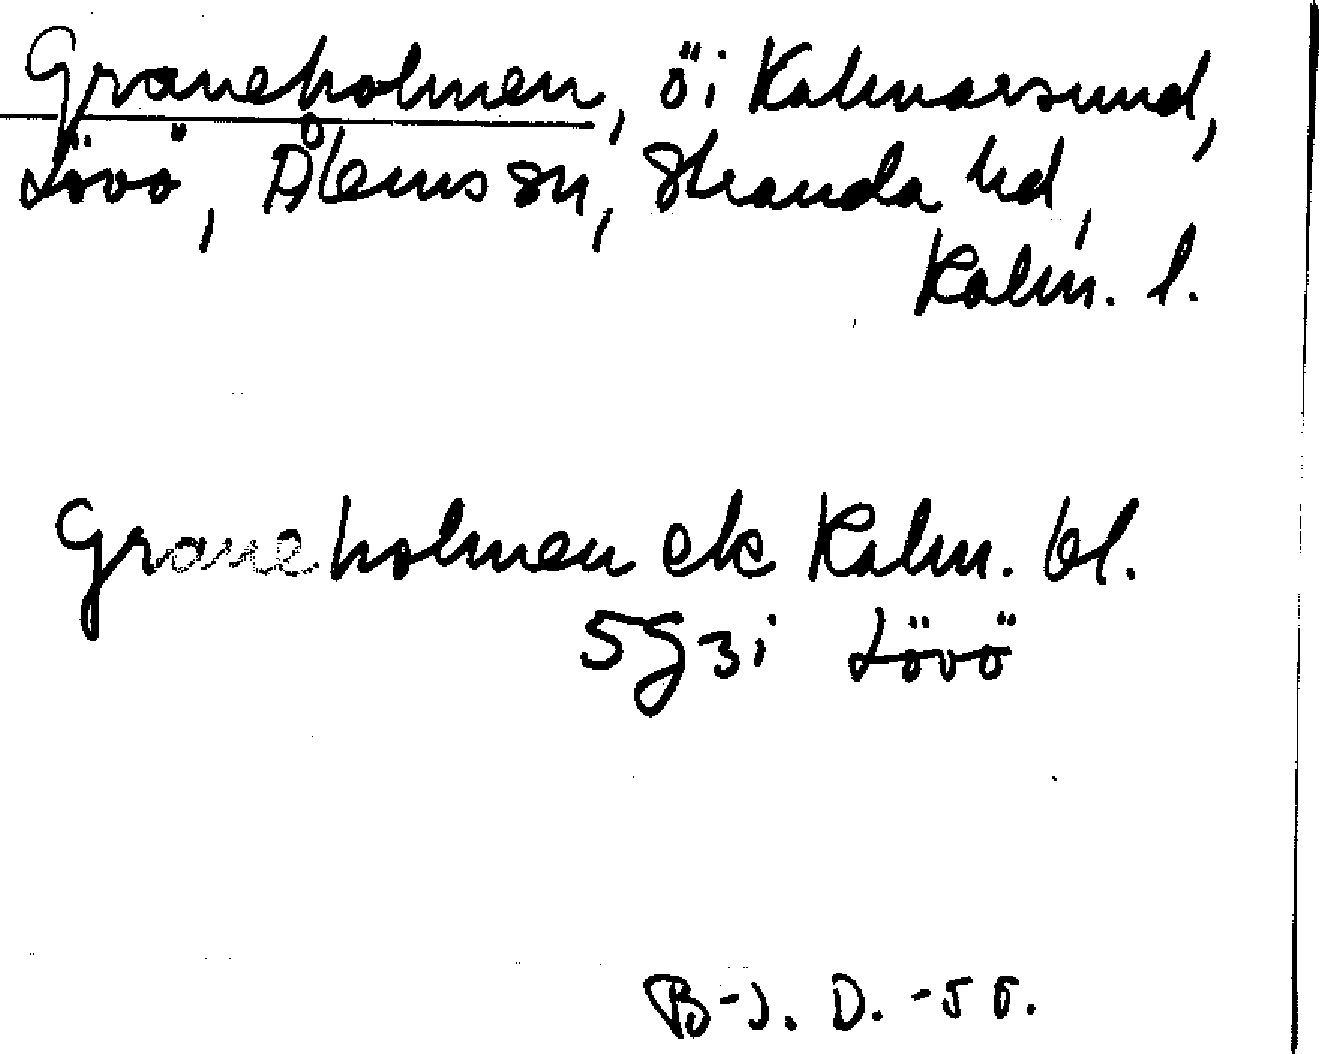 Graneholmen, ö i Kalmarsund,
Lövö, Ålems sn, Stranda hd,
Kalm. l.
Graneholmen ek Kalm. bl.
5g3i Lövö
B-J. D. -55.